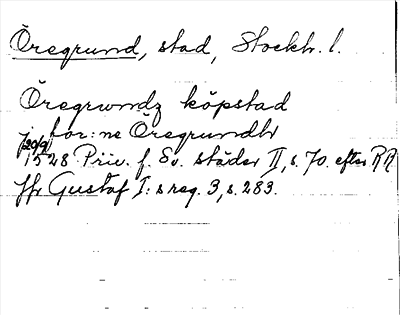 Öregrund, stad, Stockh. l.
Öregrwndz köpstad
j bor:ne Öregrundh
(20/9) 1528 Priv. f. Sv. städer II, s. 70. efter RA
Jfr Gustaf I:s reg. 3, s. 283.